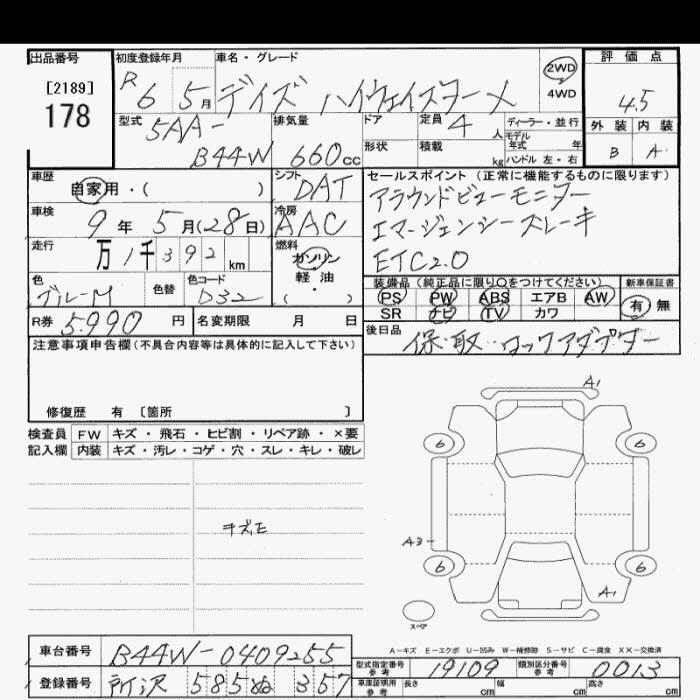 出品番号
[2189]
178
初度登録年月
R 6 5月
車名・グレード
デイズ ハイウェイスターX
2WD
4WD
評価点
4.5
外装 内装
B A
型式
5AA-
B44W
排気量
660cc
ドア
形状
定員 4人
積載 kg
ディーラー・並行
モデル年式 年
ハンドル 左・右
車歴
自家用・( )
シフト
DAT
車検
9年 5月(28日)
冷房
AAC
走行
万 1千392 km
燃料
ガソリン
軽油
・( )
色
ブルーM
色替
色コード
D32
R券 5.990円
名変期限 月 日
セールスポイント(正常に機能するものに限ります)
アラウンドビューモニター
エマージェンシーブレーキ
ETC2.0
装備品(純正品に限り○をつけてください)
PS PW ABS エアB AW
SR ナビ TV カワ
新車保証書
有 無
後日品
保・取・ロックアダプター
注意事項申告欄(不具合内容等は具体的に記入して下さい)
修復歴 有 〔箇所 〕
検査員 FW キズ・飛石・ヒビ割・リペア跡・×要
記入欄 内装 キズ・汚レ・コゲ・穴・スレ・キレ・破レ
キズモ
A1
6 6
A3
6 6
A1
スペア
A-キズ E-エクボ U-凹み W-補修跡 S-サビ C-腐食 XX-交換済
車台番号 B44W-0409255
登録番号 所沢 585 ぬ 357
型式指定番号 参考 19109
類別区分番号 参考 0013
車庫証明用 参考 長さ cm 幅 cm 高さ cm